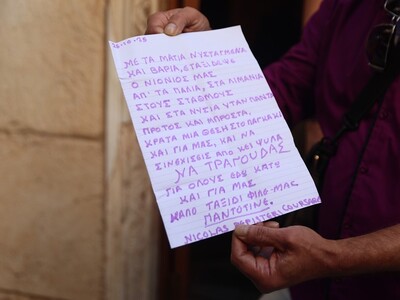 ΜΕ ΤΑ ΜΑΤΙΑ ΝΥΣΤΑΓΜΕΝΑ
ΚΑΙ ΒΑΡΙΑ, ΕΤΑΞΙΔΕΨΕ
Ο ΝΙΟΝΙΟΣ ΜΑΣ
ΑΠ' ΤΑ ΠΑΛΙΑ, ΣΤΑ ΛΙΜΑΝΙΑ
ΣΤΟΥΣ ΣΤΑΘΜΟΥΣ
ΚΑΙ ΣΤΑ ΝΥΣΙΑ ΥΤΑΝ ΠΑΝΤΑ
ΠΡΩΤΟΣ ΚΑΙ ΜΠΡΟΣΤΑ.
ΚΡΑΤΑ ΜΙΑ ΘΕΣΗ ΣΤΟ ΠΑΓΚΑΚΙ
ΚΑΙ ΓΙΑ ΜΑΣ, ΚΑΙ ΝΑ
ΣΙΝΕΧΙΣΕΙΣ ΑΠΟ ΚΕΙ ΨΥΛΑ
ΝΑ ΤΡΑΓΟΥΔΑΣ
ΓΙΑ ΟΛΟΥΣ ΕΔΩ ΚΑΤΩ
ΚΑΙ ΓΙΑ ΜΑΣ
ΚΑΛΟ ΤΑΞΙΔΙ ΦΙΛΕ ΜΑΣ
ΠΑΝΤΟΤΙΝΕ.
NICOLAS